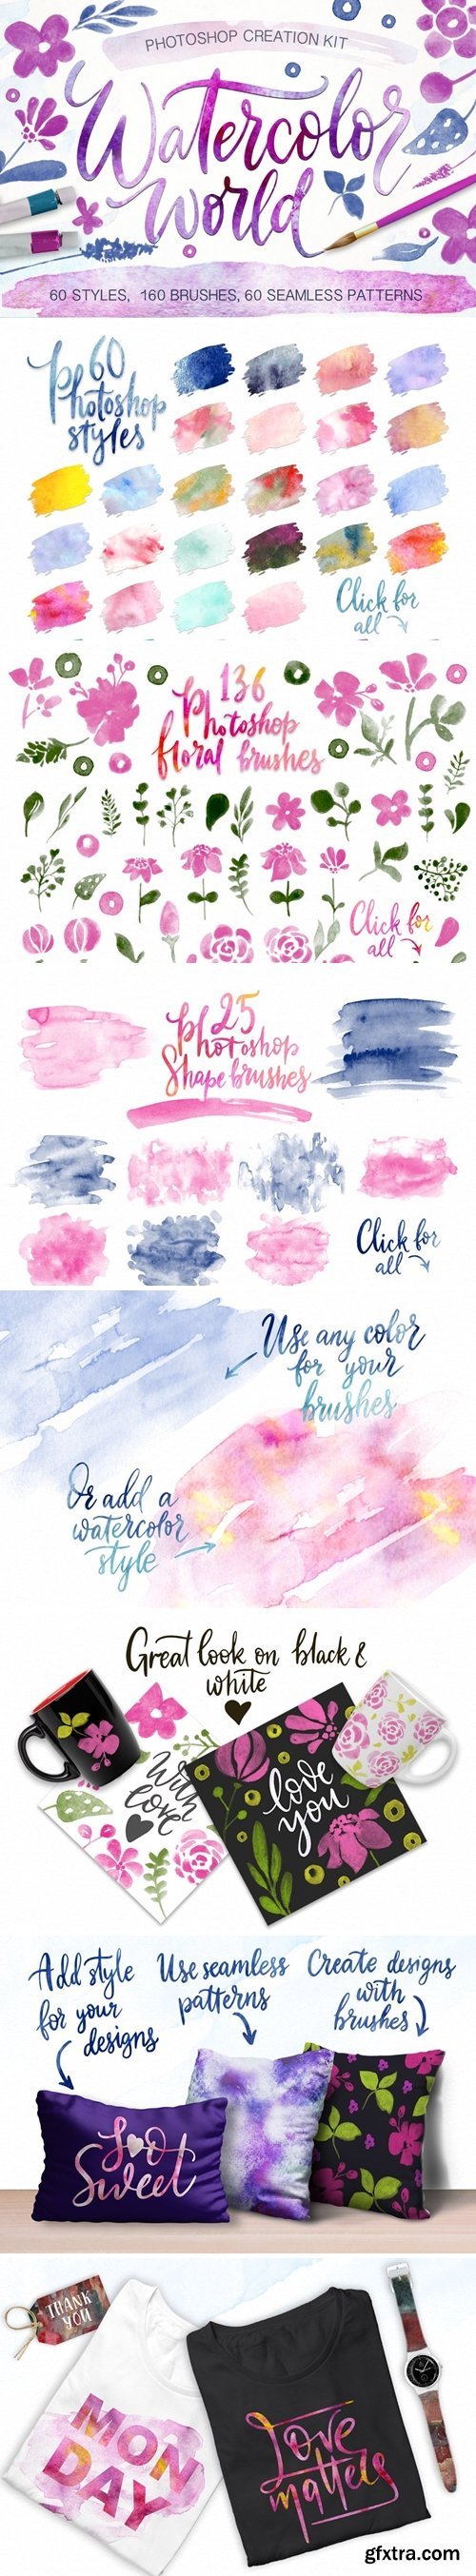 PHOTOSHOP CREATION KIT
Watercolor
World
60 STYLES, 160 BRUSHES, 60 SEAMLESS PATTERNS
60
Photoshop
styles
Click for
all
136
Photoshop
floral brushes
Click for
all
25
Photoshop
Shape brushes
Click for
all
Use any color
for your
brushes
Or add a
watercolor
style
Great look on black &
white
With
love
love
you
Add style
for your
designs
Use seamless
patterns
Create designs
with
brushes
So
Sweet
THANK
YOU
MON
DAY
Love
matters
gfxtra.com